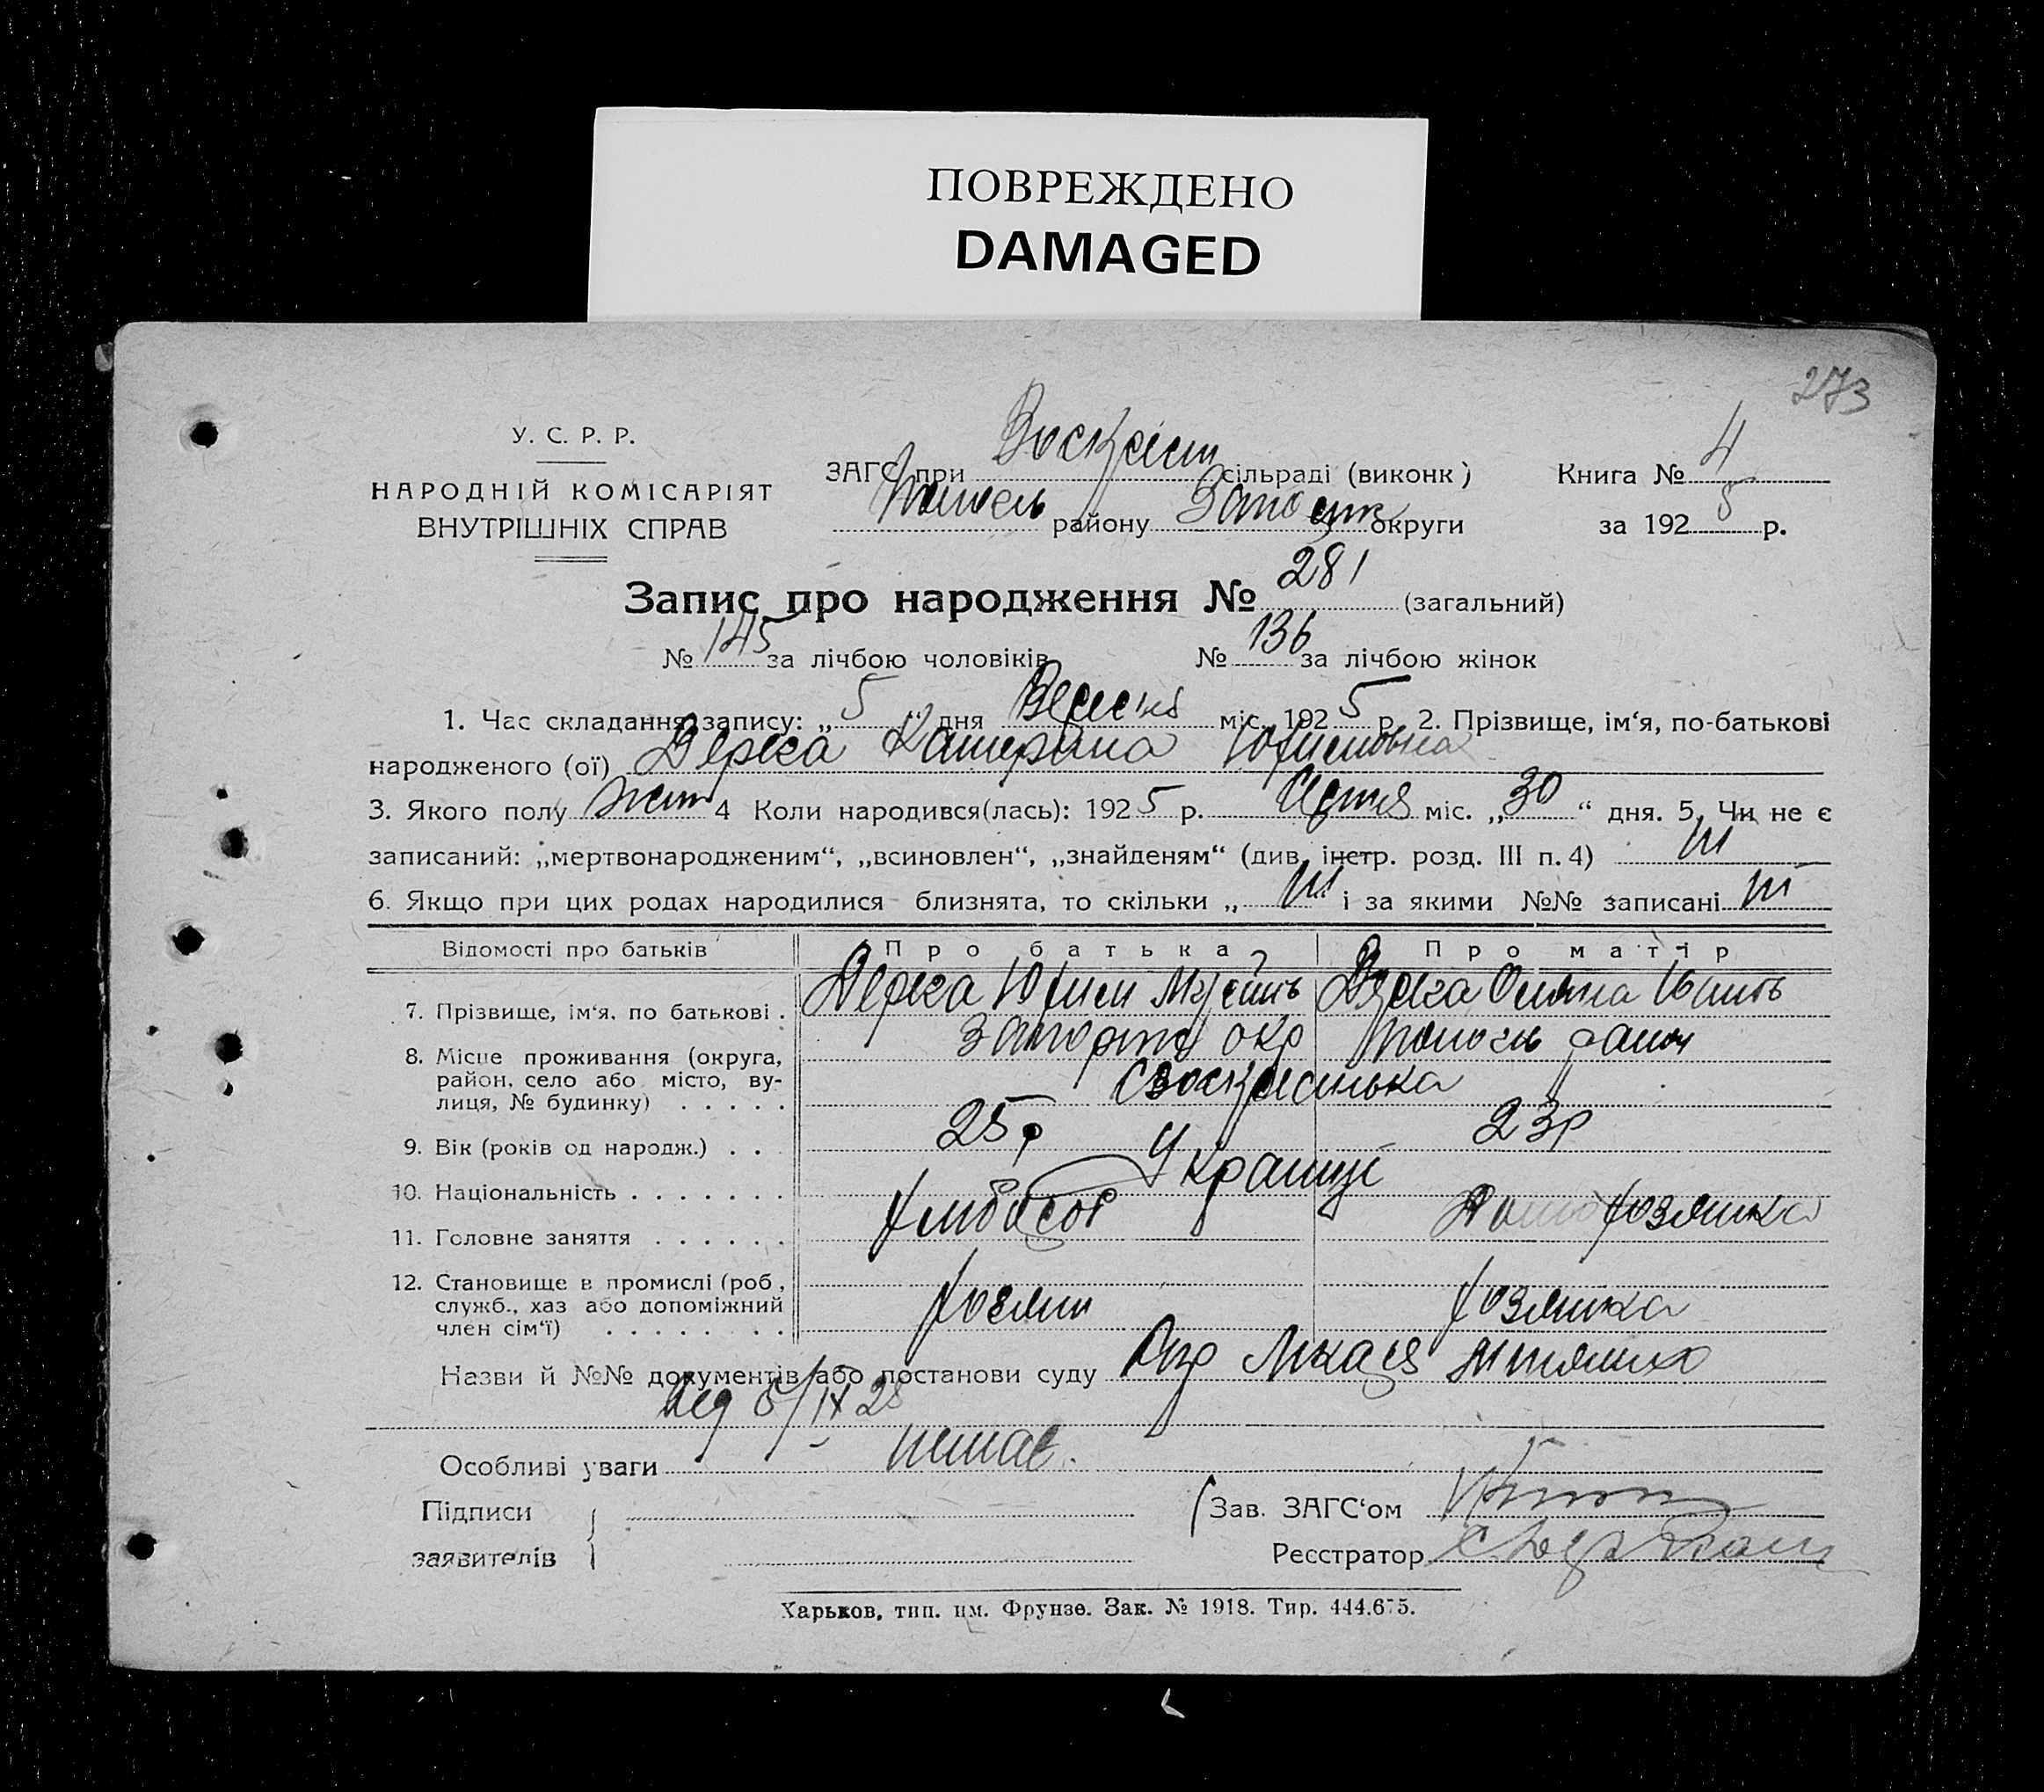 ПОВРЕЖДЕНО
DAMAGED
273
У. С. Р. Р.
НАРОДНІЙ КОМІСАРІЯТ
ВНУТРІШНІХ СПРАВ
ЗАГС при Воскрісен сільраді (виконк)
району Запоріж округи
Книга № 4
за 1925 р.
Запис про народження № 281 (загальний)
№ 145 за лічбою чоловіків № 136 за лічбою жінок
1. Час складання запису: „5“ дня Вересня міс. 1925 р. 2. Прізвище, ім‘я, по-батькові
народженого (ої) Дерека Катерина Юхимовна
3. Якого полу жин 4 Коли народився(лась): 1925 р. Серпня міс. „30“ дня. 5. Чи не є
записаний: „мертвонародженим“, „всиновлен“, „знайденям“ (див. інстр. розд. III п. 4) ні
6. Якщо при цих родах народилися близнята, то скільки „ні“ і за якими №№ записані ні
Відомості про батьків Про батька Про матір
7. Прізвище, ім‘я, по батькові . Дерека Юхим Дерека
8. Місце проживання (округа, район, село або місто, вулиця, № будинку) . . . . . Запоріж окр район
с Воскресенька
9. Вік (років од народж.) . . . 25 р 23 р
10. Національність . . . . . . . Українці
11. Головне заняття . . . . . . Хлибороб Домохозяйка
12. Становище в промислі (роб., служб., хаз або допоміжний член сім‘ї) . . . . . . . . Хозяин Хозяйка
Назви й №№ документів або постанови суду
5/IX 25
Особливі уваги немає.
Підписи
заявителів
Зав. ЗАГС‘ом
Реєстратор
Харьков, тип. им. Фрунзе. Зак. № 1918. Тир. 444.675.